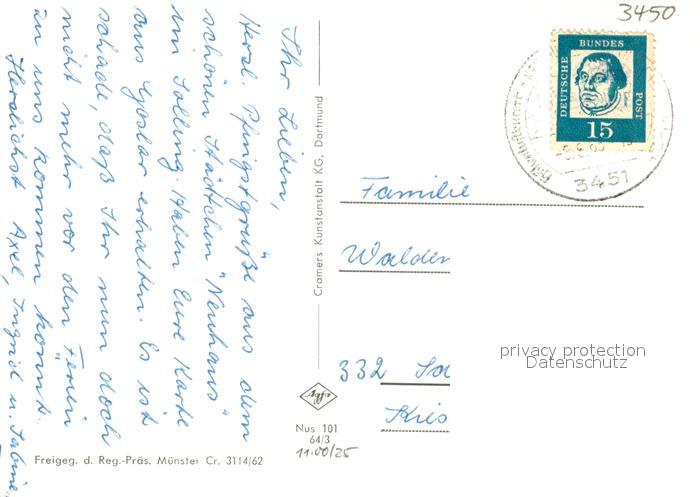 Ihr Lieben,
Herzl. Pfingstgrüße aus dem
schönen Städtchen "Neuhaus"
im Solling. Haben Eure Karte
aus Goslar erhalten. Es ist
schade, daß Ihr nun doch
nicht mehr vor den Ferien
zu uns kommen könnt.
Herzlichst Axel, Ingrid u. Sabine
Freigeg. d. Reg.-Präs. Münster Cr. 3114/62
Cramers Kunstanstalt KG, Dortmund
Nus 101
64/3
11:00/25
3450
DEUTSCHE
BUNDES
POST
15
3451
Familie
Walden
332 Sa
Kreis
privacy protection
Datenschutz